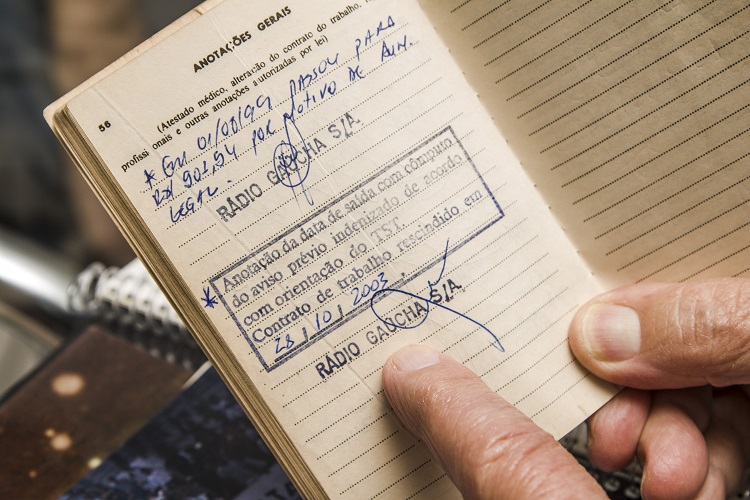 ANOTAÇÕES GERAIS
(Atestado médico, alteração do contrato do trabalho,
profissi onais e outras anotações autorizadas por lei)
56
* EM 01/08/99 PASSOU PARA
R$ 901,94 POR MOTIVO DE
LEGAL.
RÁDIO GAÚCHA S/A.
* Anotação da data de saída com cômputo
do aviso prévio indenizado de acordo
com orientação do TST.
Contrato de trabalho rescindido em
28 / 10 / 2003.
RÁDIO GAÚCHA S/A.